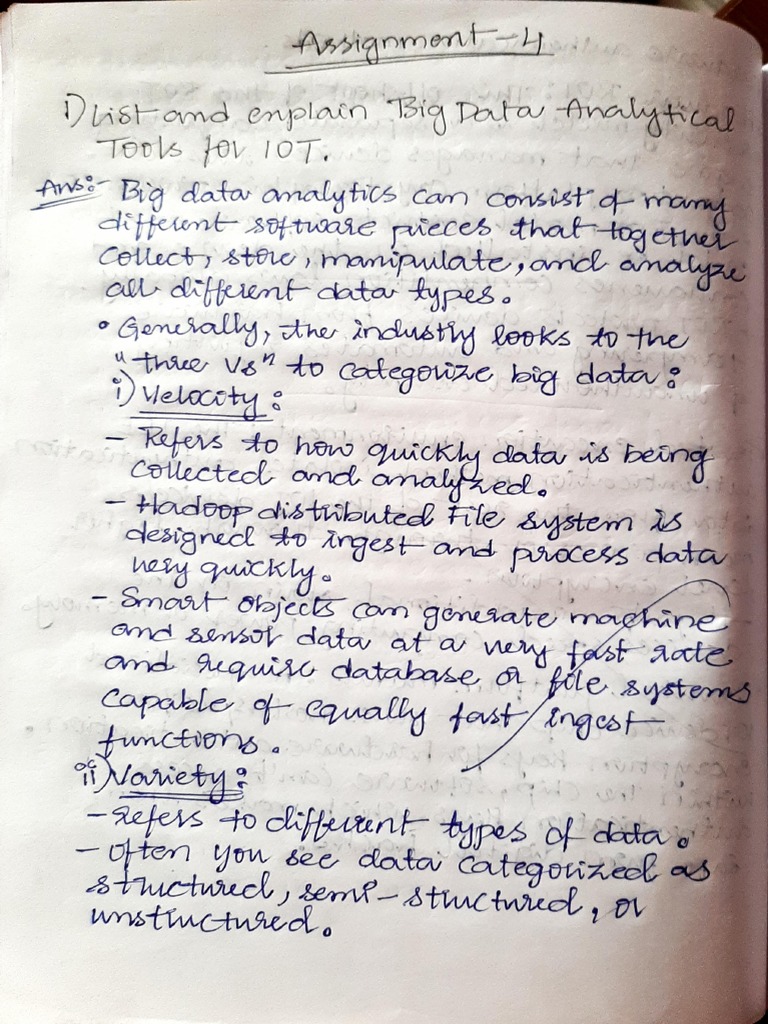 Assignment-4
1) List and explain Big Data Analytical
Tools for IOT.
Ans:- Big data analytics can consist of many
different software pieces that together
collect, store, manipulate, and analyze
all different data types.
• Generally, the industry looks to the
"three Vs" to categorize big data:
i) Velocity:
- Refers to how quickly data is being
collected and analyzed.
- Hadoop distributed File system is
designed to ingest and process data
very quickly.
- Smart objects can generate machine
and sensor data at a very fast rate
and require database or file systems
capable of equally fast ingest
functions.
ii) Variety:
- Refers to different types of data.
- Often you see data categorized as
structured, semi-structured, or
unstructured.